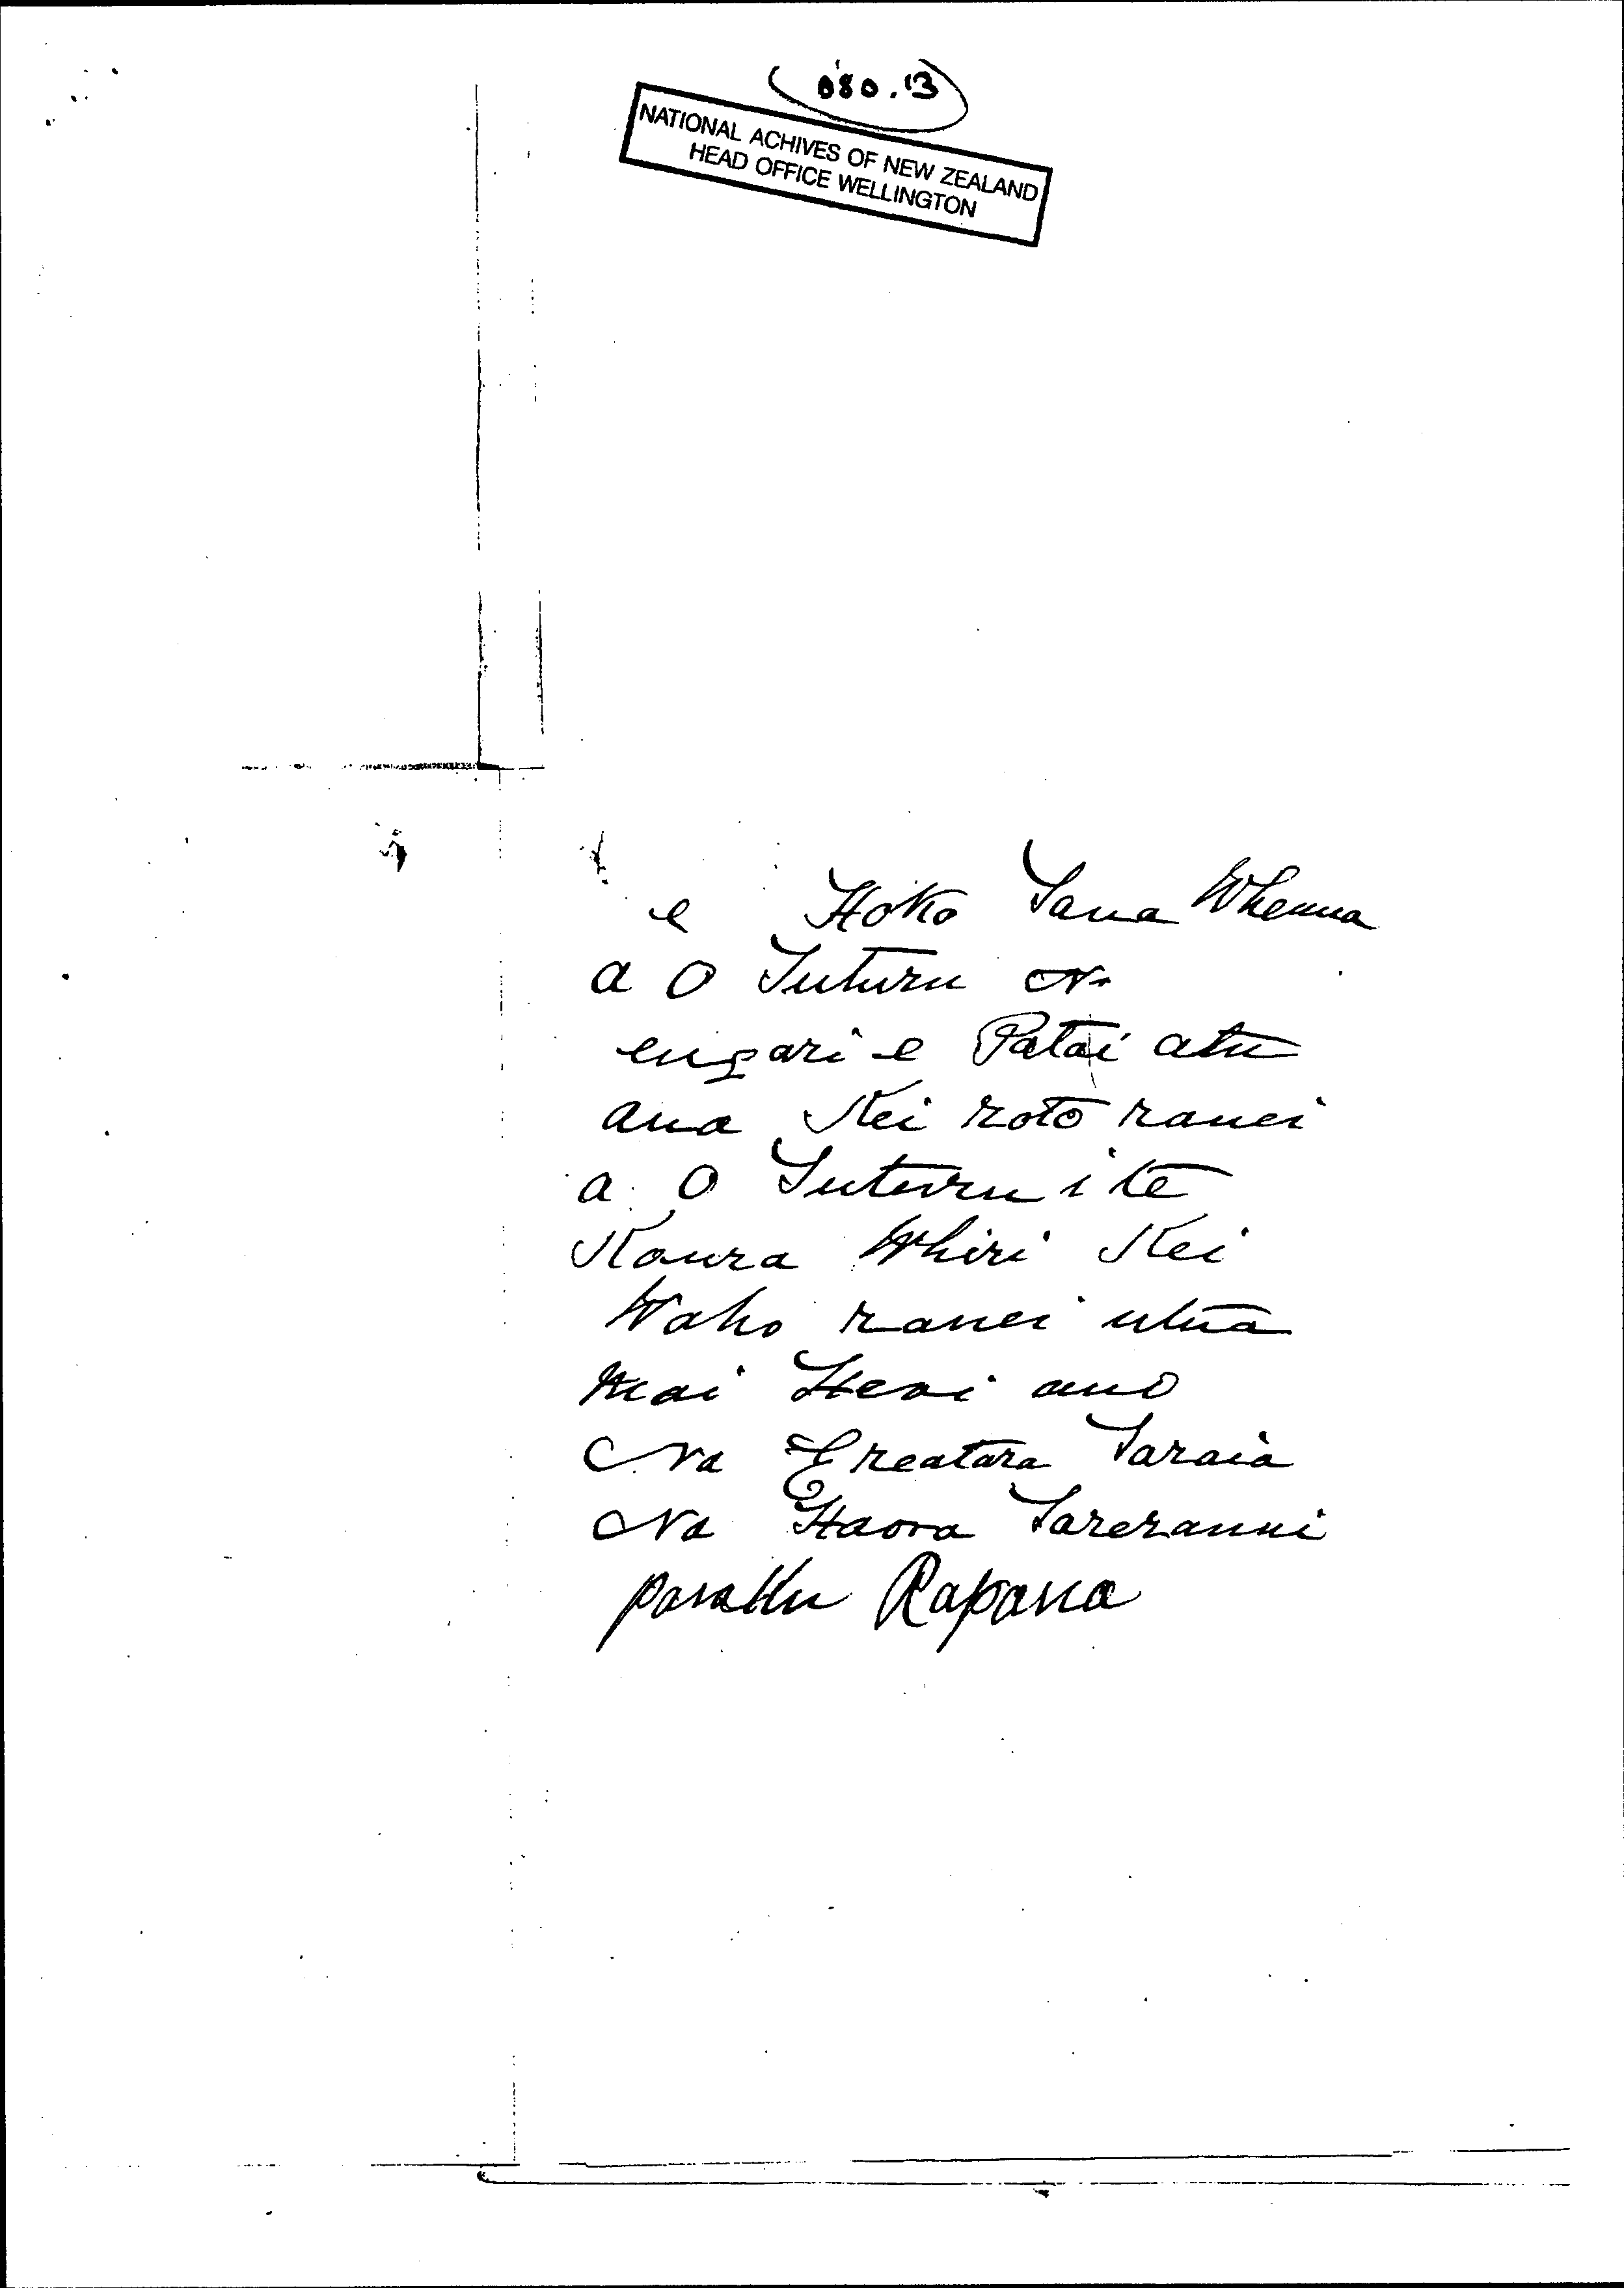 080.13
NATIONAL ACHIVES OF NEW ZEALAND
HEAD OFFICE WELLINGTON
e Hoko Tana Whenua
a O Tuturu
engari e Patai atu
ana Kei roto ranei
a O Tuturu i te
Koura Whiri Kei
Waho ranei utua
mai Heoi ano
Na Ereatara Taraia
Na Haora Tareranui
Rapana